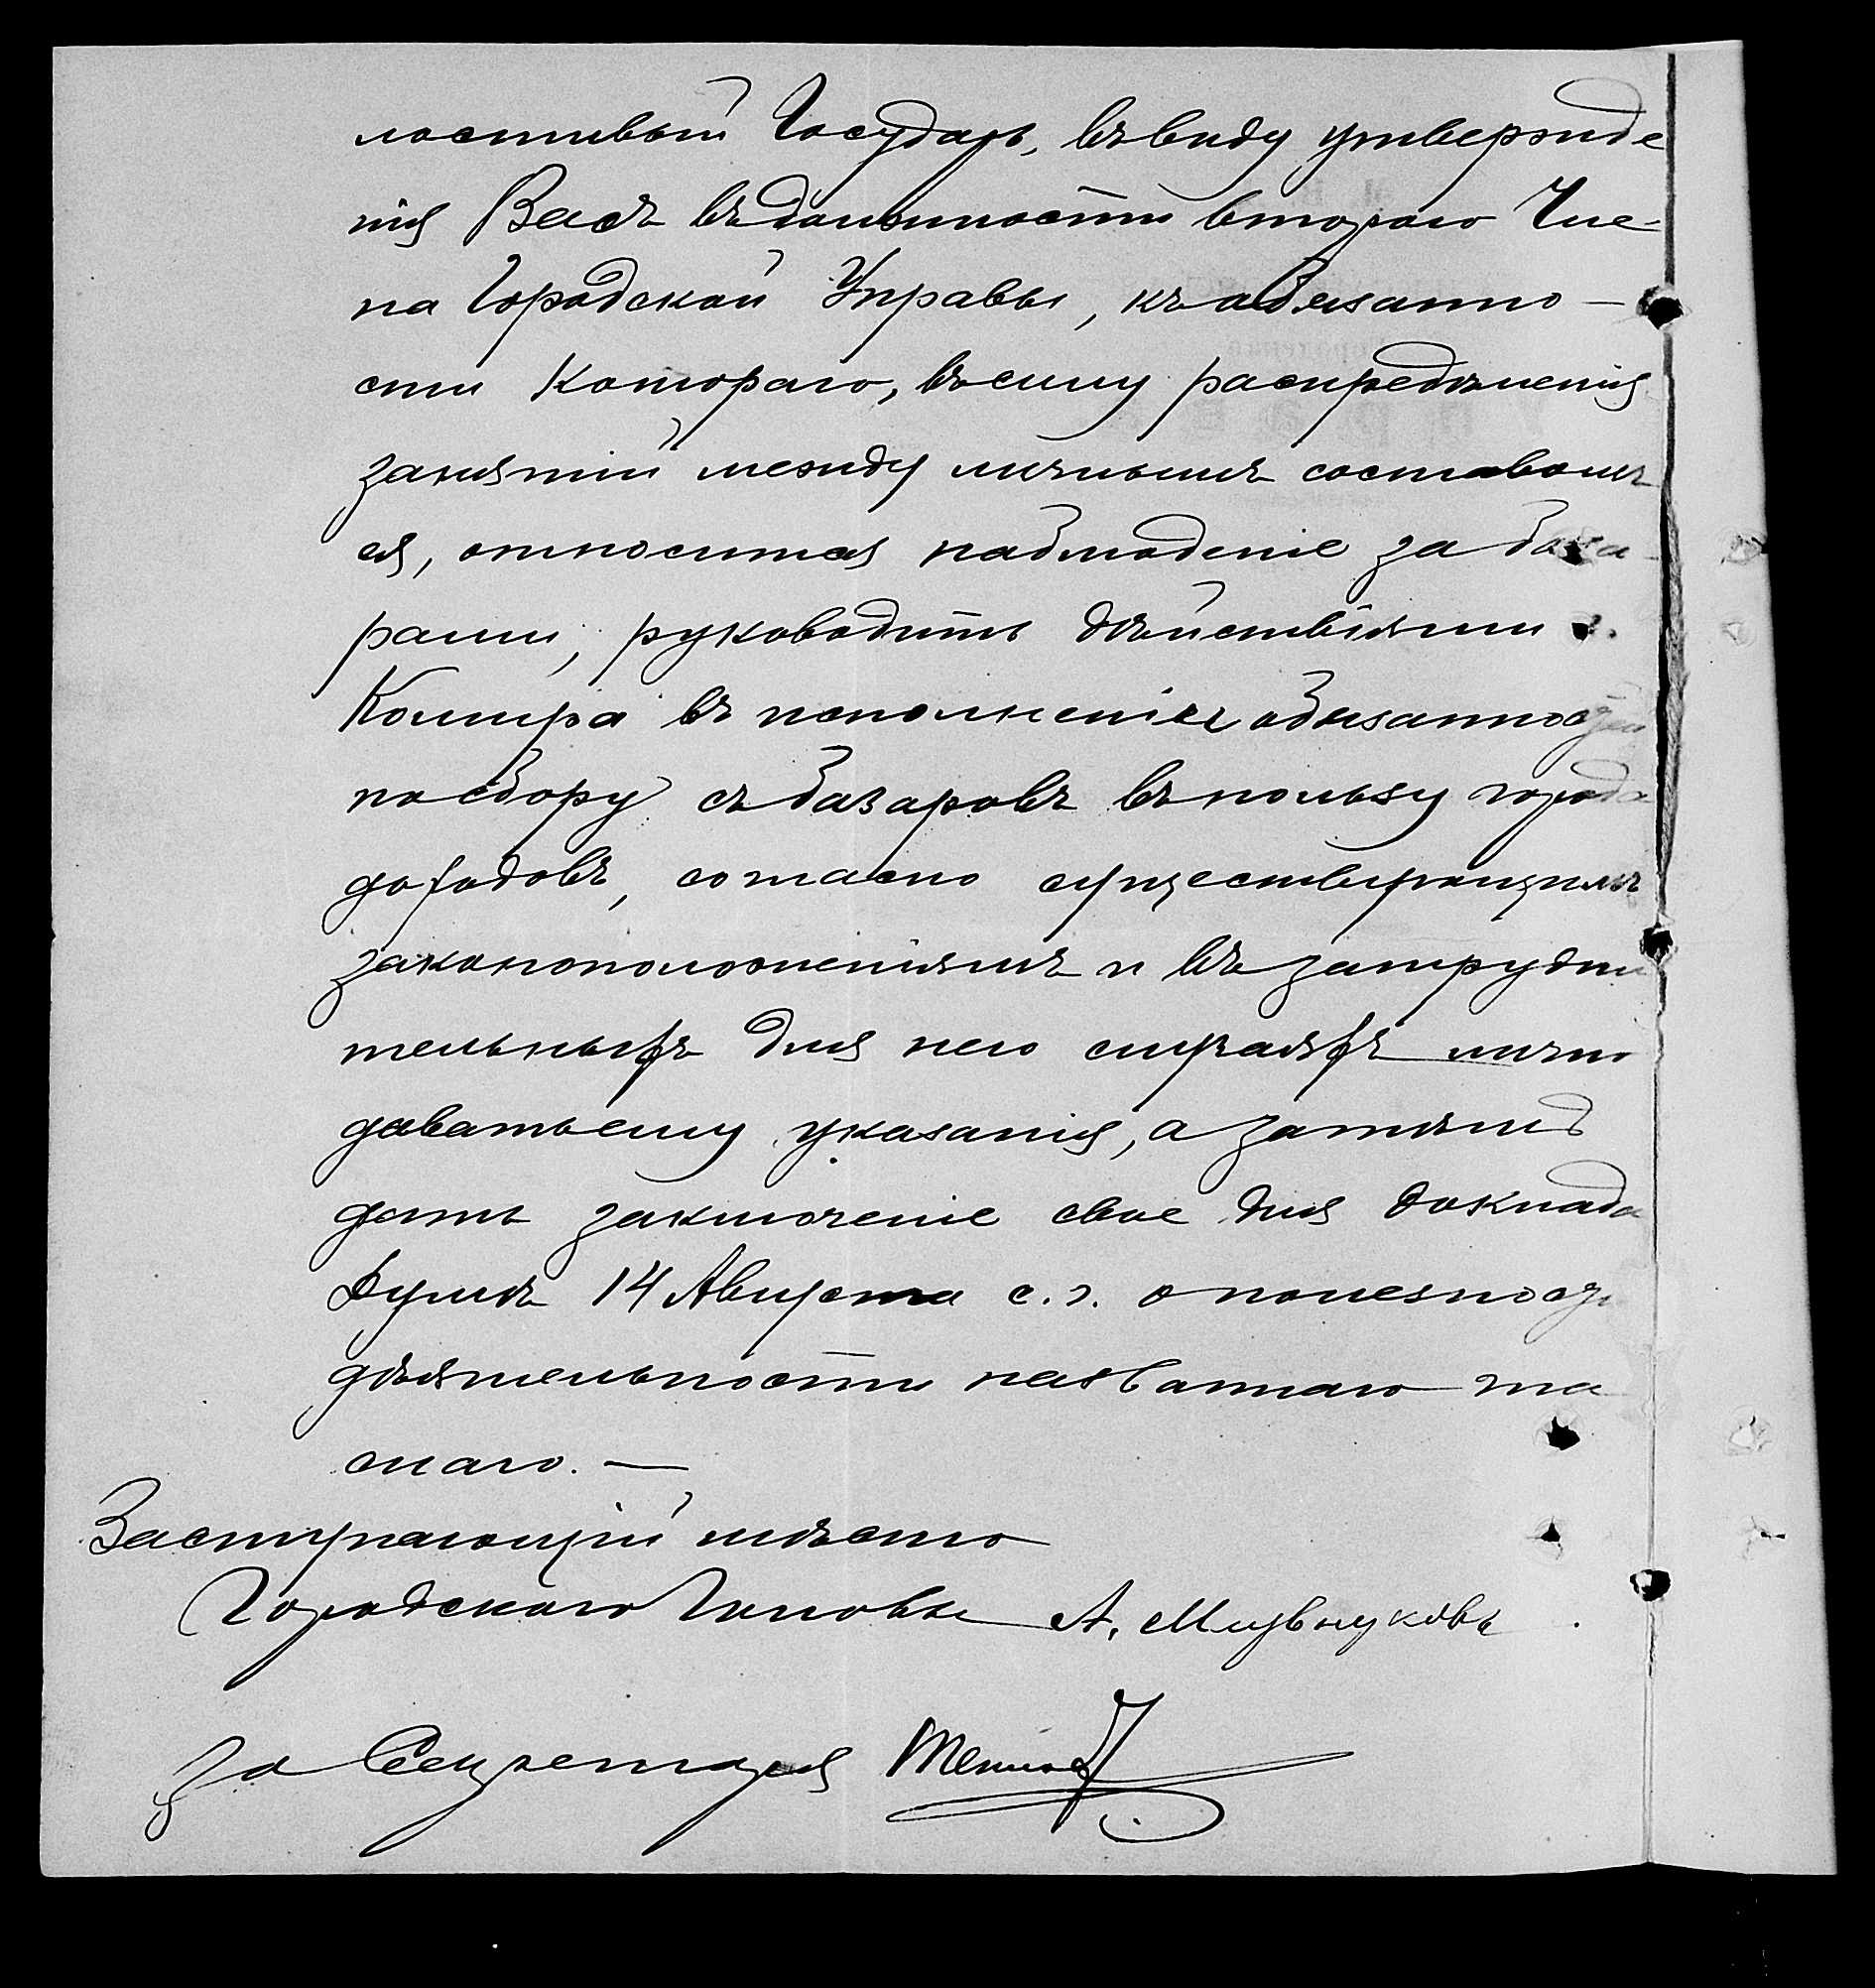 лостивый Государь, въ виду утвержде
нія Васъ въ должности втораго Чле-
на Городской Управы, къ обязанно-
сти котораго, въ силу распредѣленія
занятій между личнымъ составомъ
ея, относится наблюденіе за база-
рами, руководить дѣйствіями г.
въ исполненіи обязанностей
по сбору съ базаровъ въ пользу города
доходовъ, согласно существующимъ
законоположеніямъ и въ затрудни
тельныхъ для него случаяхъ лично
давать ему указанія, а затѣмъ
дать заключеніе свое для доклада
Думѣ 14 Августа с. г. о полезности
дѣятельности названнаго гла
снаго. —
Заступающій мѣсто
Городского Головы А.
За Секретаря